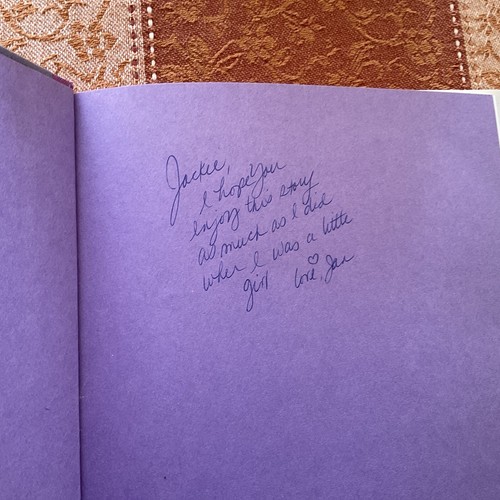 Jackie,
I hope you
enjoy this story
as much as I did
when I was a little
girl love, Jan